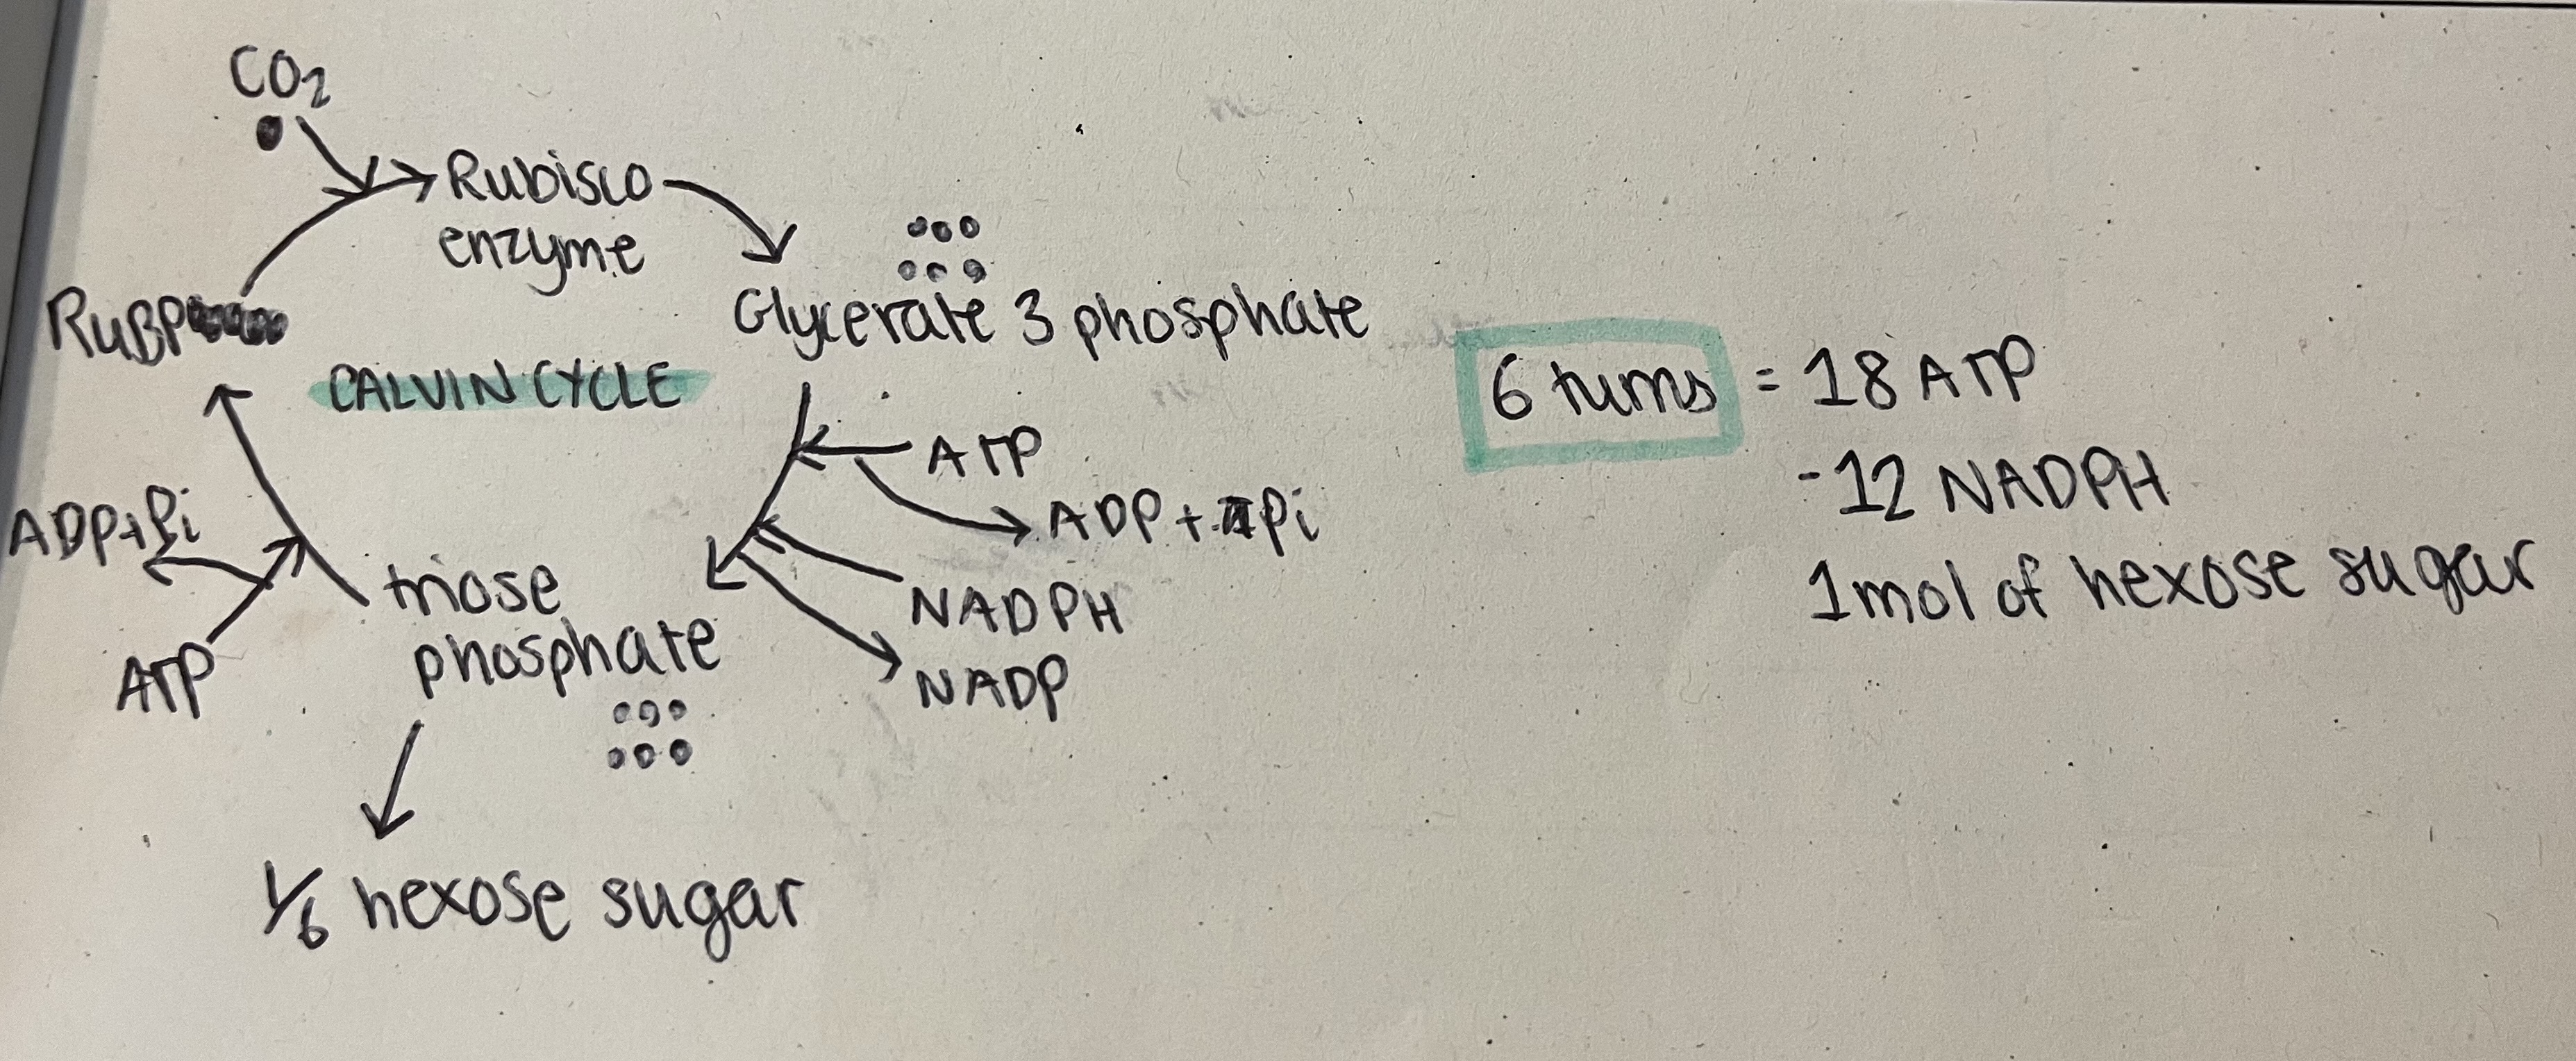 CO2
Rubisco
enzyme
RuBP
Glycerate 3 phosphate
CALVIN CYCLE
ATP
ADP + Pi
NADPH
NADP
ADP+Pi
ATP
triose
phosphate
1/6 hexose sugar
6 turns = 18 ATP
-12 NADPH
1mol of hexose sugar